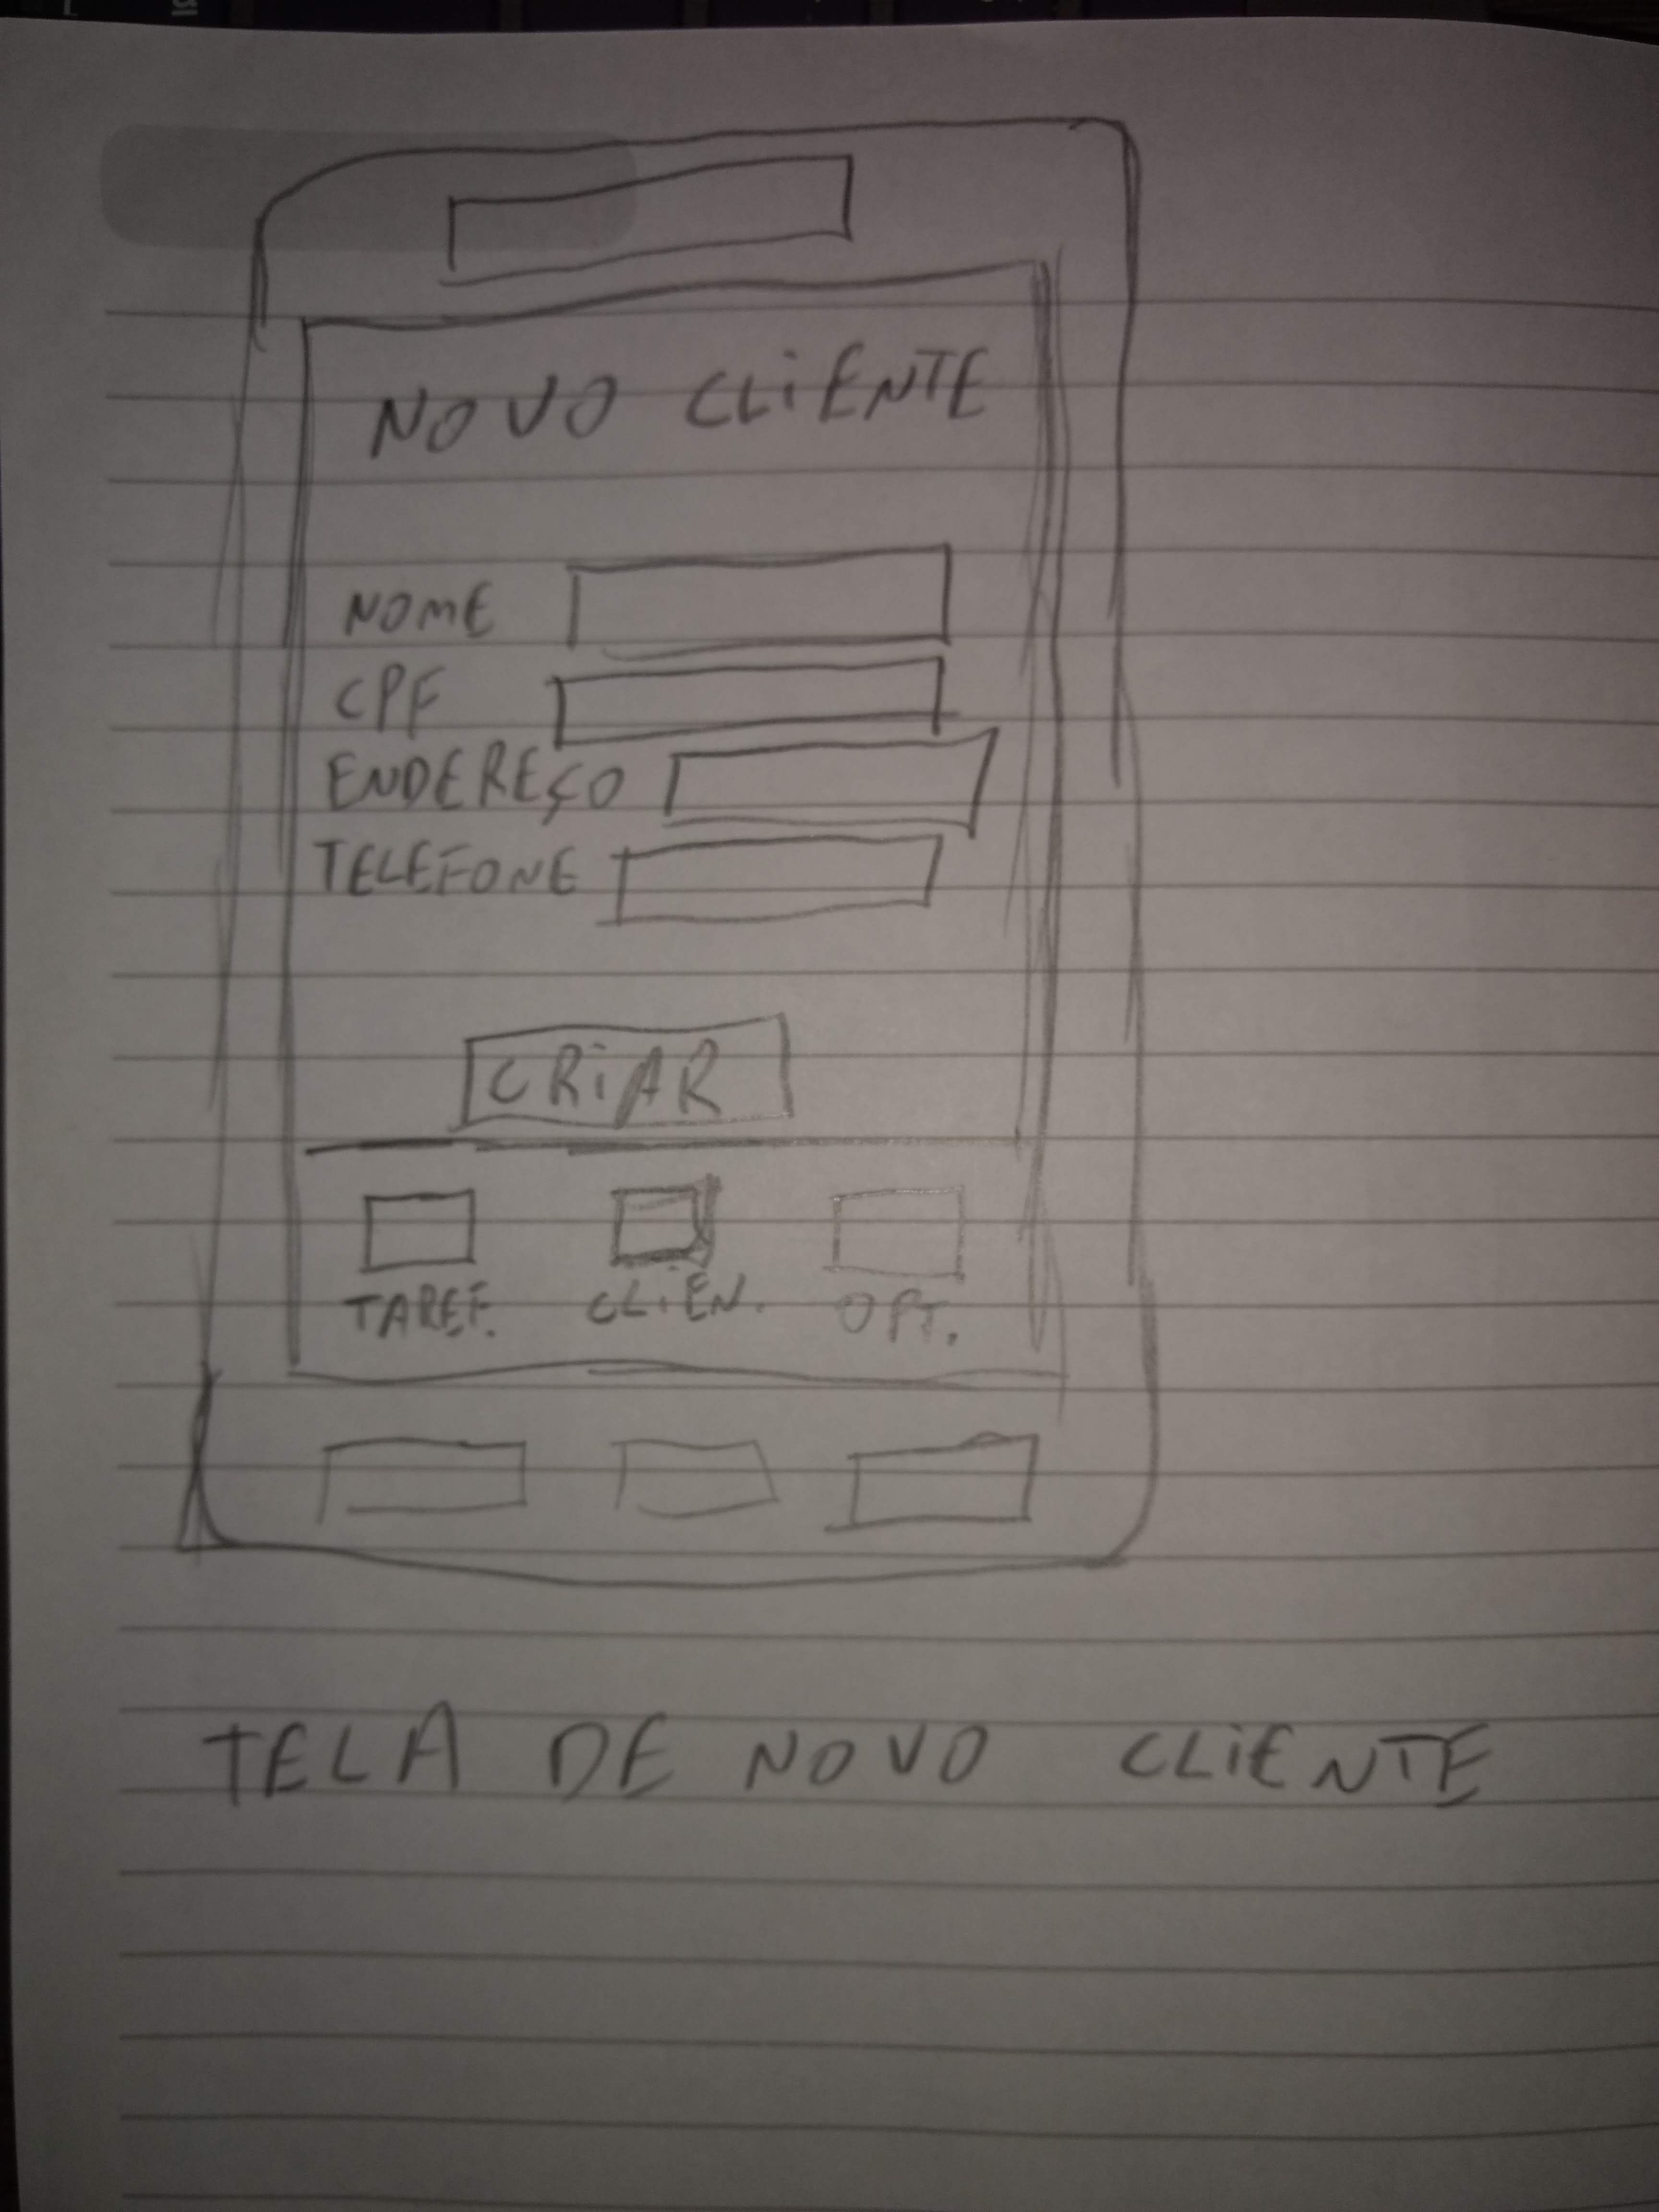 NOVO CLIENTE
NOME
CPF
ENDEREÇO
TELEFONE
CRIAR
TAREF. CLIEN. OPT.
TELA DE NOVO CLIENTE